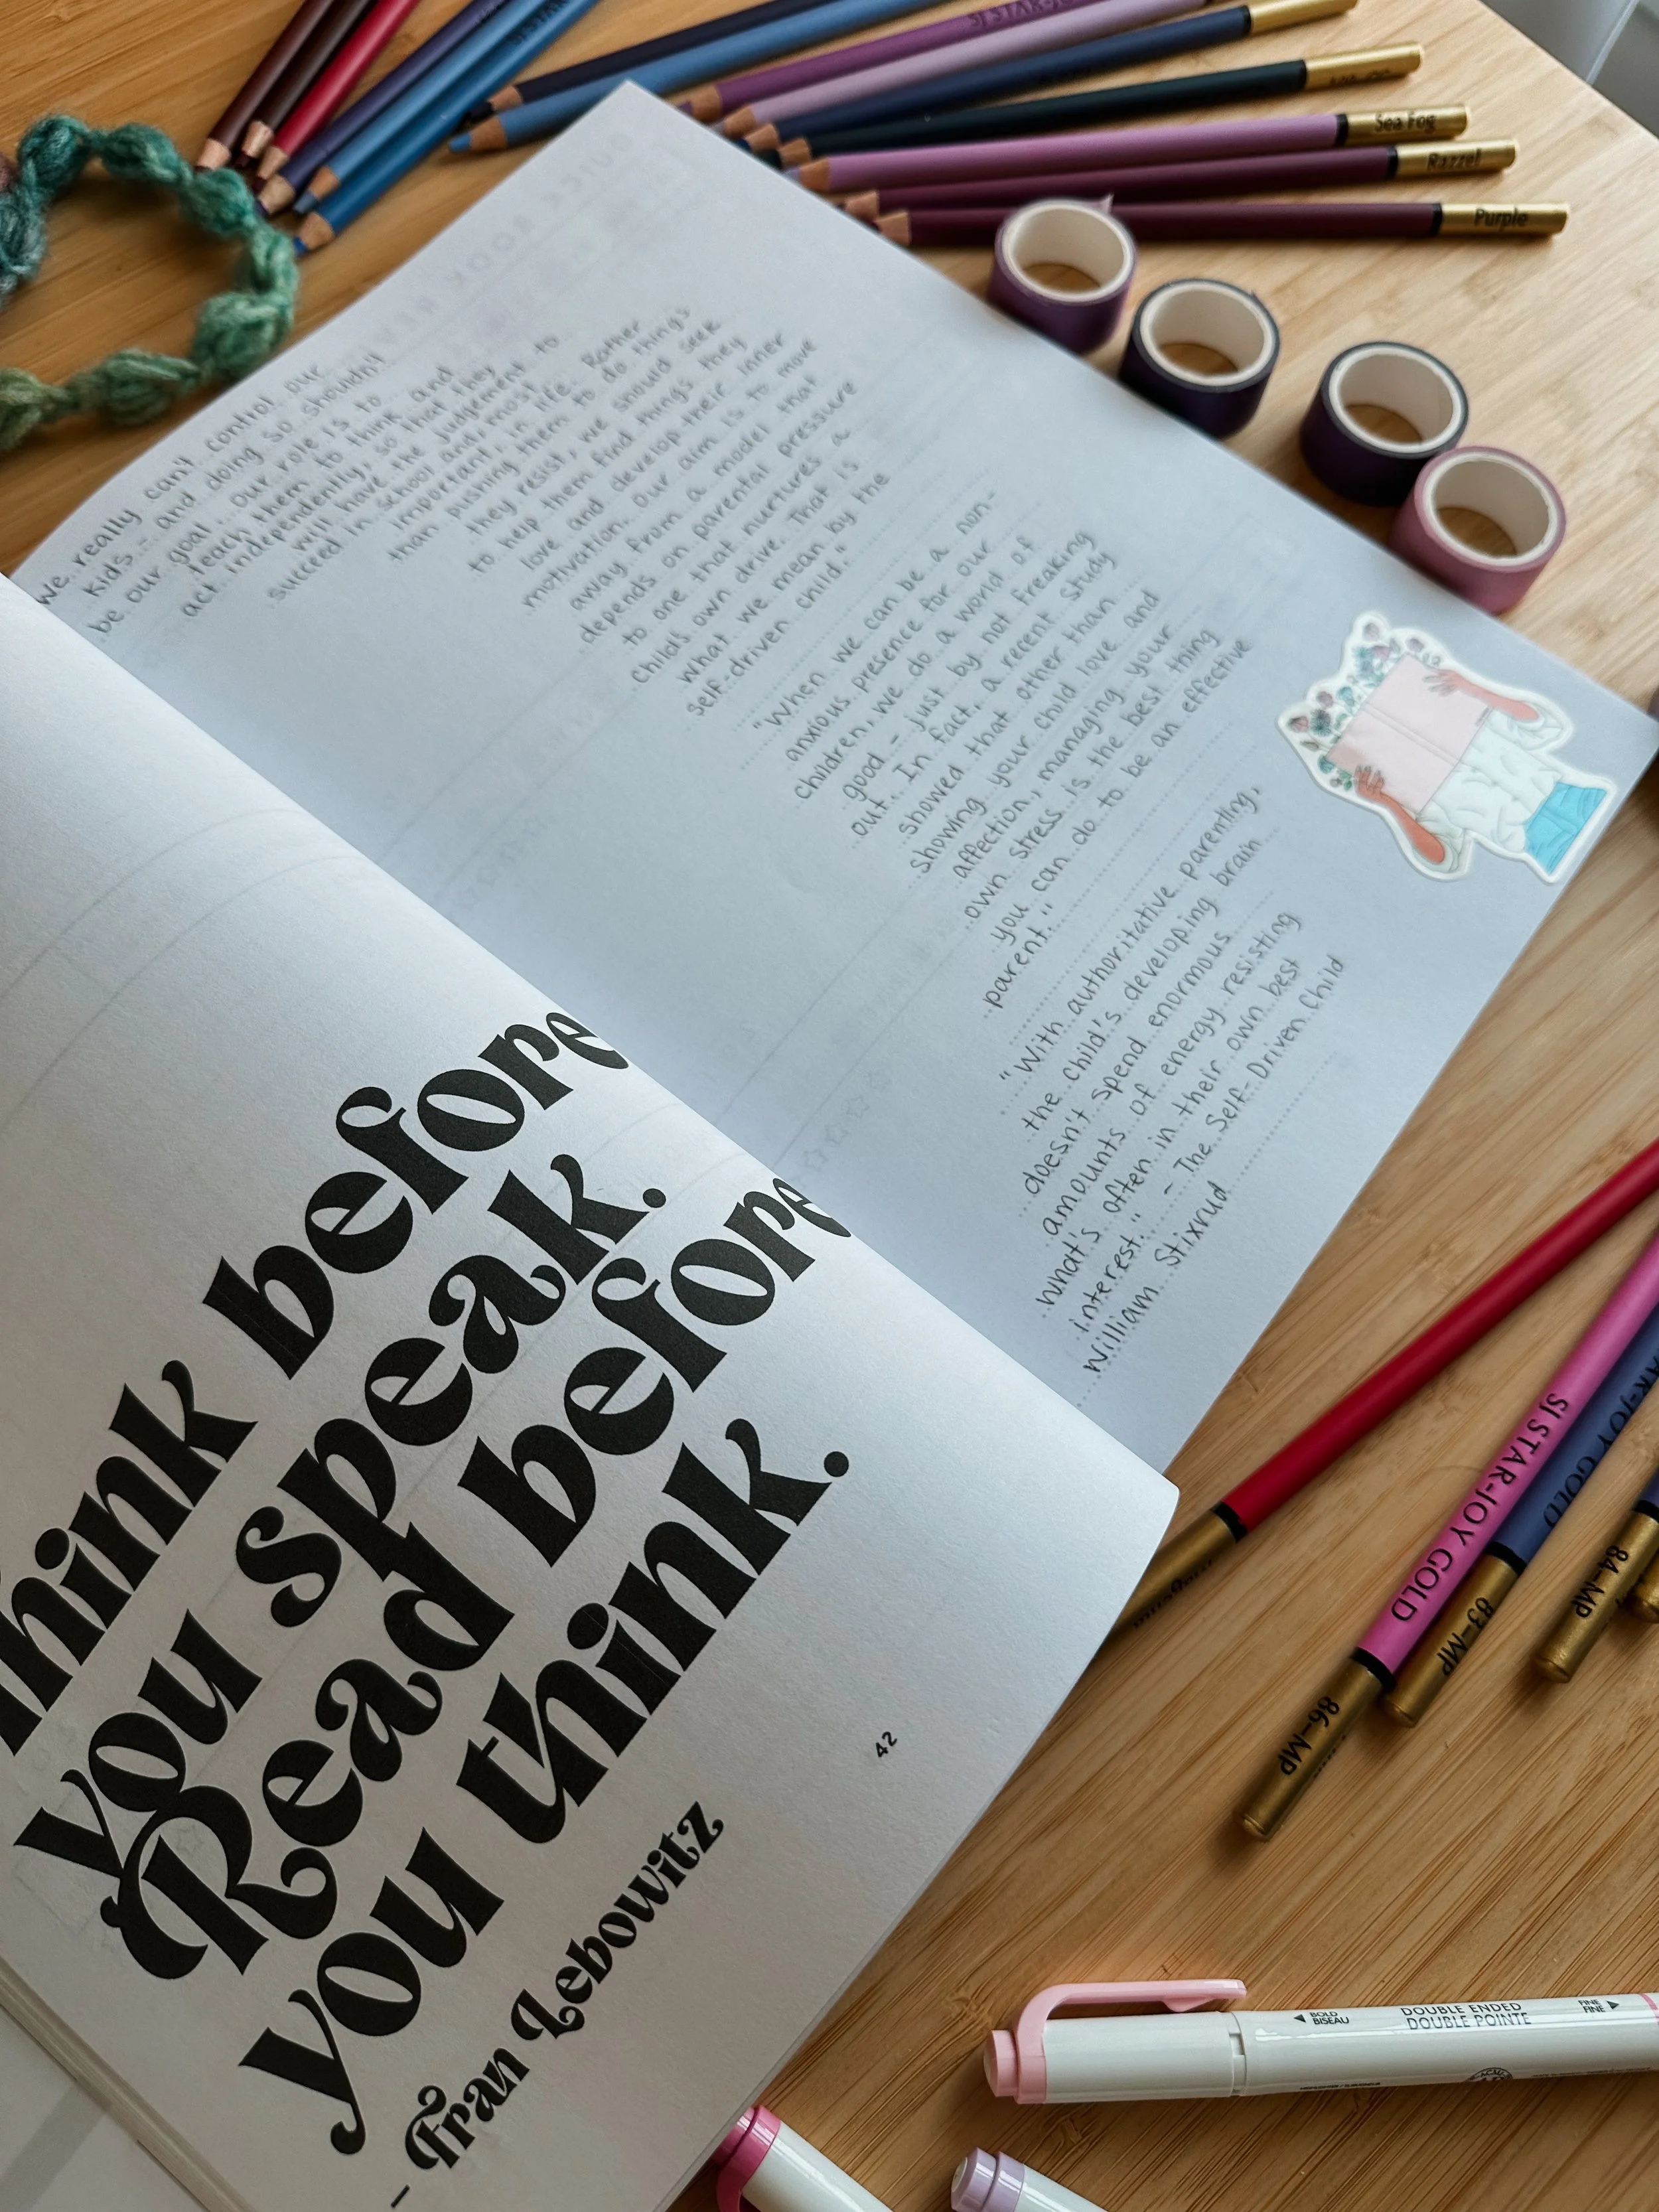 think before
you speak.
Read before
you think.
- Fran Lebowitz
42
We really can't control our
kids - and doing so shouldn't
be our goal. Our role is to
teach them to think and
act independently, so that they
will have the judgement to
succeed in school and, most
important, in life. Rather
than pushing them to do things
they resist, we should seek
to help them find things they
love and develop their inner
motivation. Our aim is to move
away from a model that
depends on parental pressure
to one that nurtures a
child's own drive. That is
what we mean by the
self-driven child."
"When we can be a non-
anxious presence for our
children, we do a world of
good - just by not freaking
out. In fact, a recent study
showed that other than
showing your child love and
affection, managing your
own stress is the best thing
you can do to be an effective
parent."
"With authoritative parenting,
the child's developing brain
doesn't spend enormous
amounts of energy resisting
what's often in their own best
interest." - The Self-Driven Child
William Stixrud
SI STAR-JOY
Sea Fog
Razzel
Purple
SI STAR-JOY GOLD
86-MP
83-MP
84-MP
BOLD
BISEAU
DOUBLE ENDED
DOUBLE POINTE
FINE
FINE